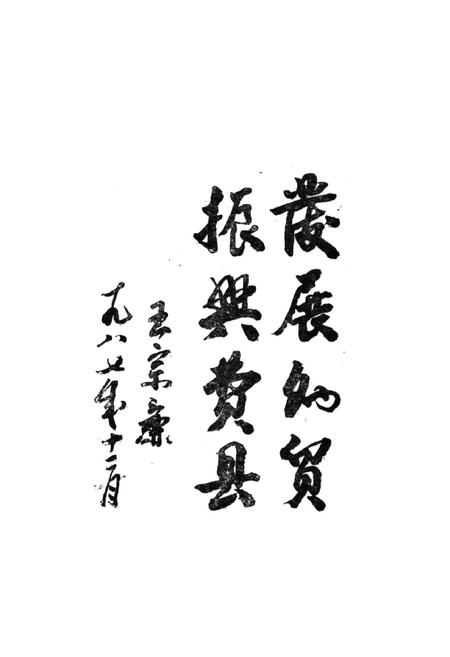 發展外貿
振興費县
王宗
一九八七年十二月